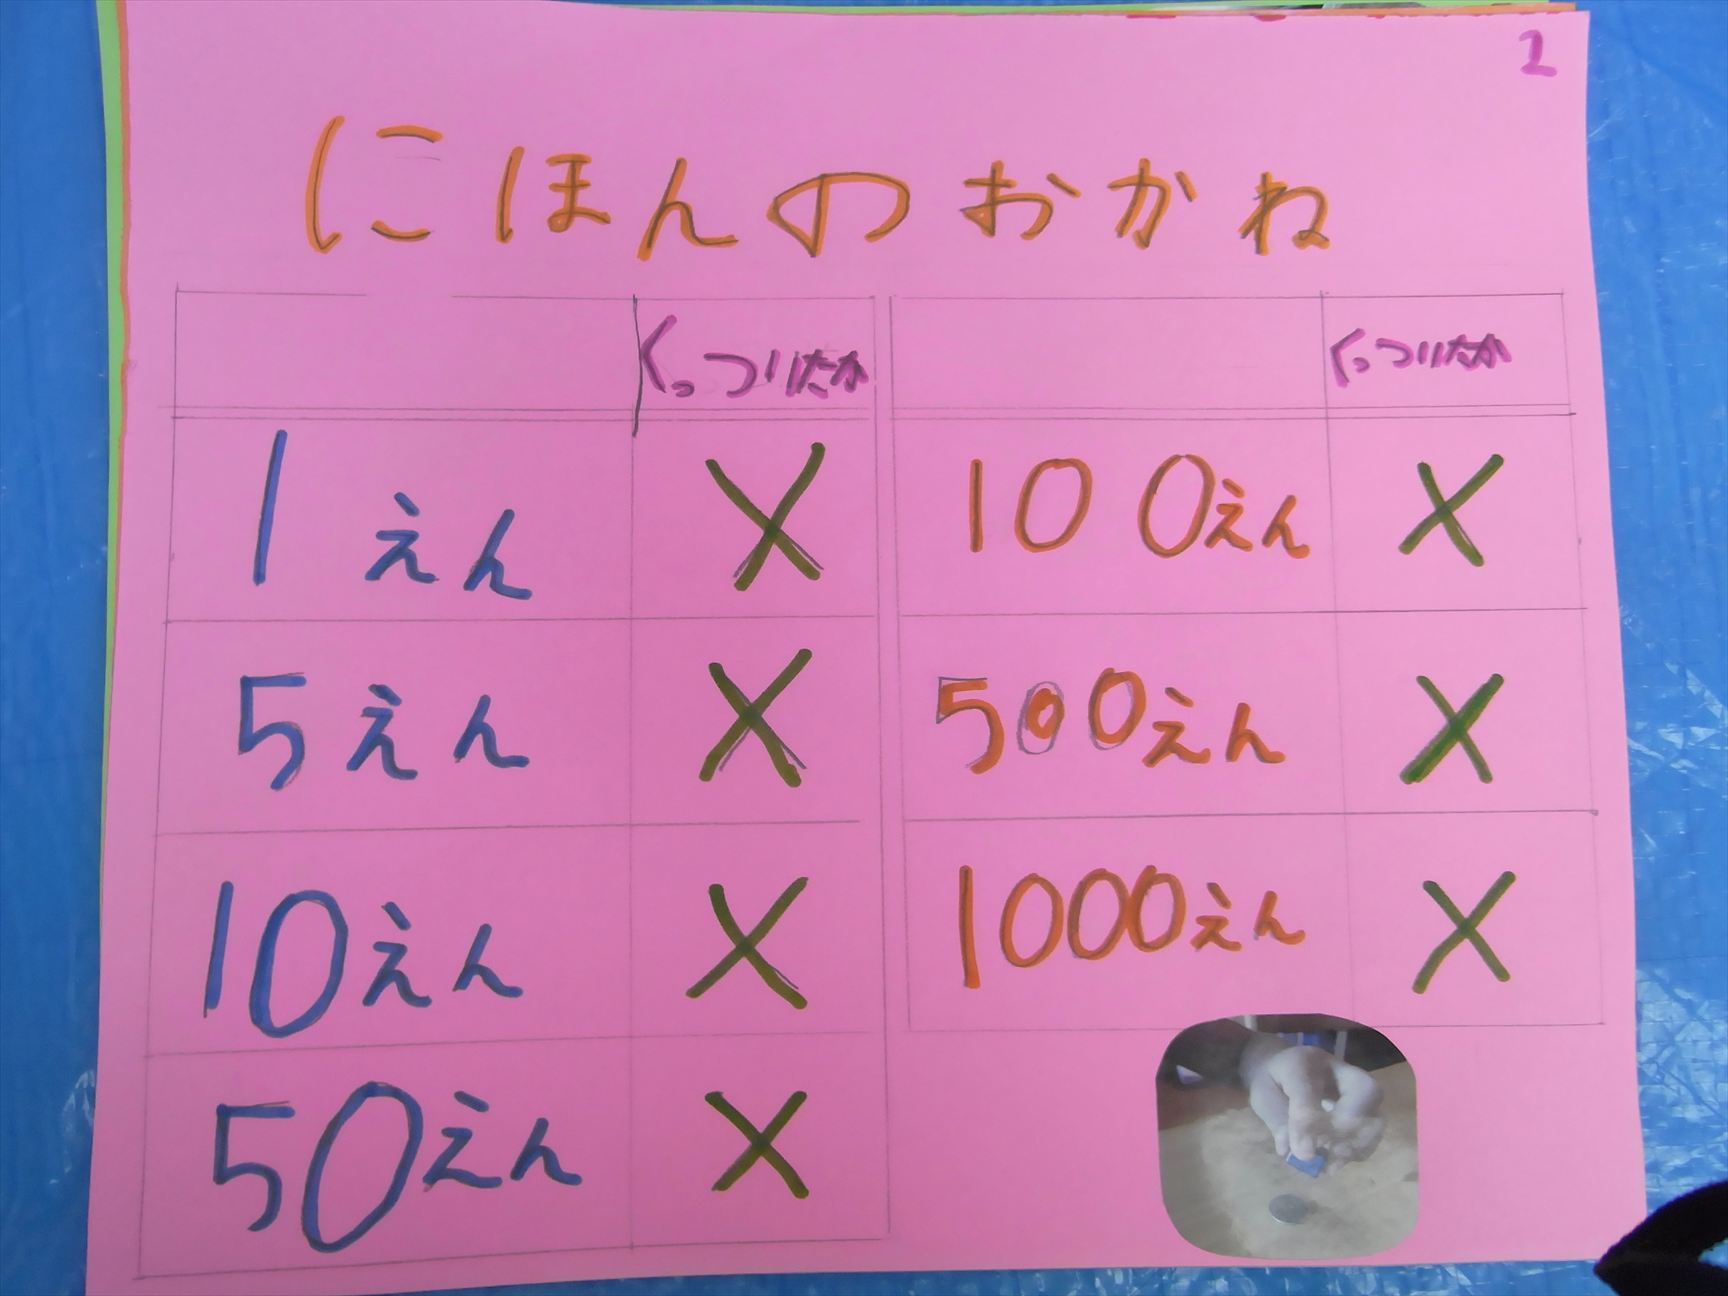 2
にほんのおかね
くっついたか くっついたか
1えん × 100えん ×
5えん × 500えん ×
10えん × 1000えん ×
50えん ×